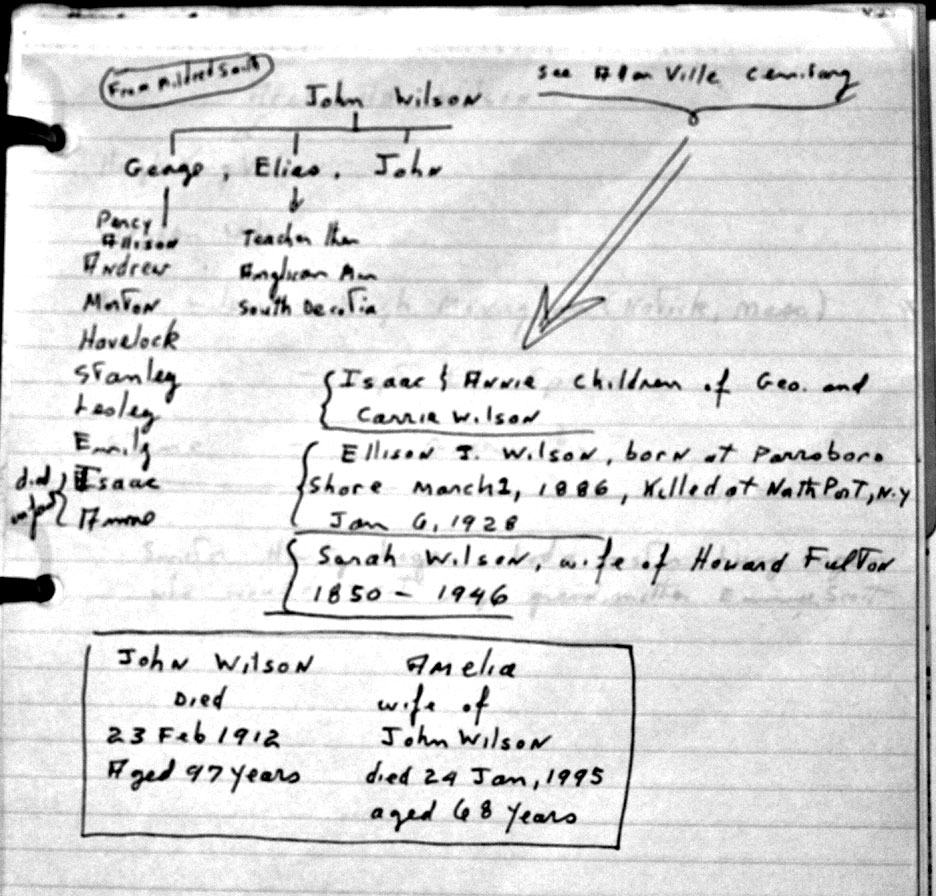 From Mildred South
see Allan Ville Cemitary
John Wilson
George, Elias, John
Percy
Allison
Andrew
Morton
Havelock
Stanley
Lesley
Emily
Isaac
Annie
died
Teacher then
Anglican Min
South Decotia
Isaac & Annie, children of Geo. and
Carrie Wilson
Ellison J. Wilson, born at Parrsboro
Shore March 1, 1886, Killed at North Port, N.Y
Jan 6, 1928
Sarah Wilson, wife of Howard Fulton
1850 - 1946
John Wilson
Died
23 Feb 1912
Aged 97 years
Amelia
wife of
John Wilson
died 24 Jan, 1995
aged 68 years